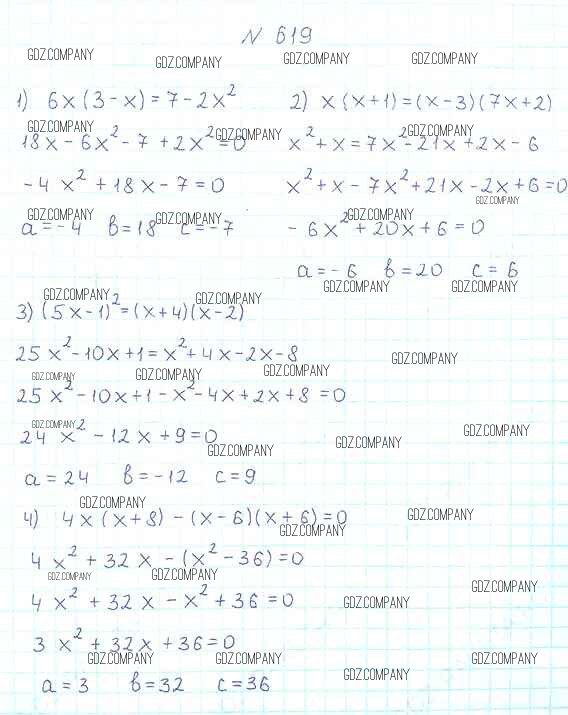 № 619
GDZ.COMPANY GDZ.COMPANY GDZ.COMPANY GDZ.COMPANY
1) 6x(3-x)=7-2x² 2) x(x+1)=(x-3)(7x+2)
GDZ.COMPANY GDZ.COMPANY GDZ.COMPANY
18x-6x²-7+2x²=0 x²+x=7x²-21x+2x-6
-4x²+18x-7=0 x²+x-7x²+21x-2x+6=0
GDZ.COMPANY GDZ.COMPANY GDZ.COMPANY GDZ.COMPANY
a=-4 b=18 c=-7 -6x²+20x+6=0
a=-6 b=20 c=6
GDZ.COMPANY GDZ.COMPANY GDZ.COMPANY GDZ.COMPANY
3) (5x-1)²=(x+4)(x-2)
25x²-10x+1=x²+4x-2x-8
GDZ.COMPANY GDZ.COMPANY GDZ.COMPANY GDZ.COMPANY
25x²-10x+1-x²-4x+2x+8=0
GDZ.COMPANY GDZ.COMPANY GDZ.COMPANY GDZ.COMPANY
24x²-12x+9=0
a=24 b=-12 c=9
GDZ.COMPANY GDZ.COMPANY GDZ.COMPANY
4) 4x(x+8)-(x-6)(x+6)=0
4x²+32x-(x²-36)=0
GDZ.COMPANY GDZ.COMPANY GDZ.COMPANY GDZ.COMPANY
4x²+32x-x²+36=0
3x²+32x+36=0
GDZ.COMPANY GDZ.COMPANY GDZ.COMPANY GDZ.COMPANY
a=3 b=32 c=36